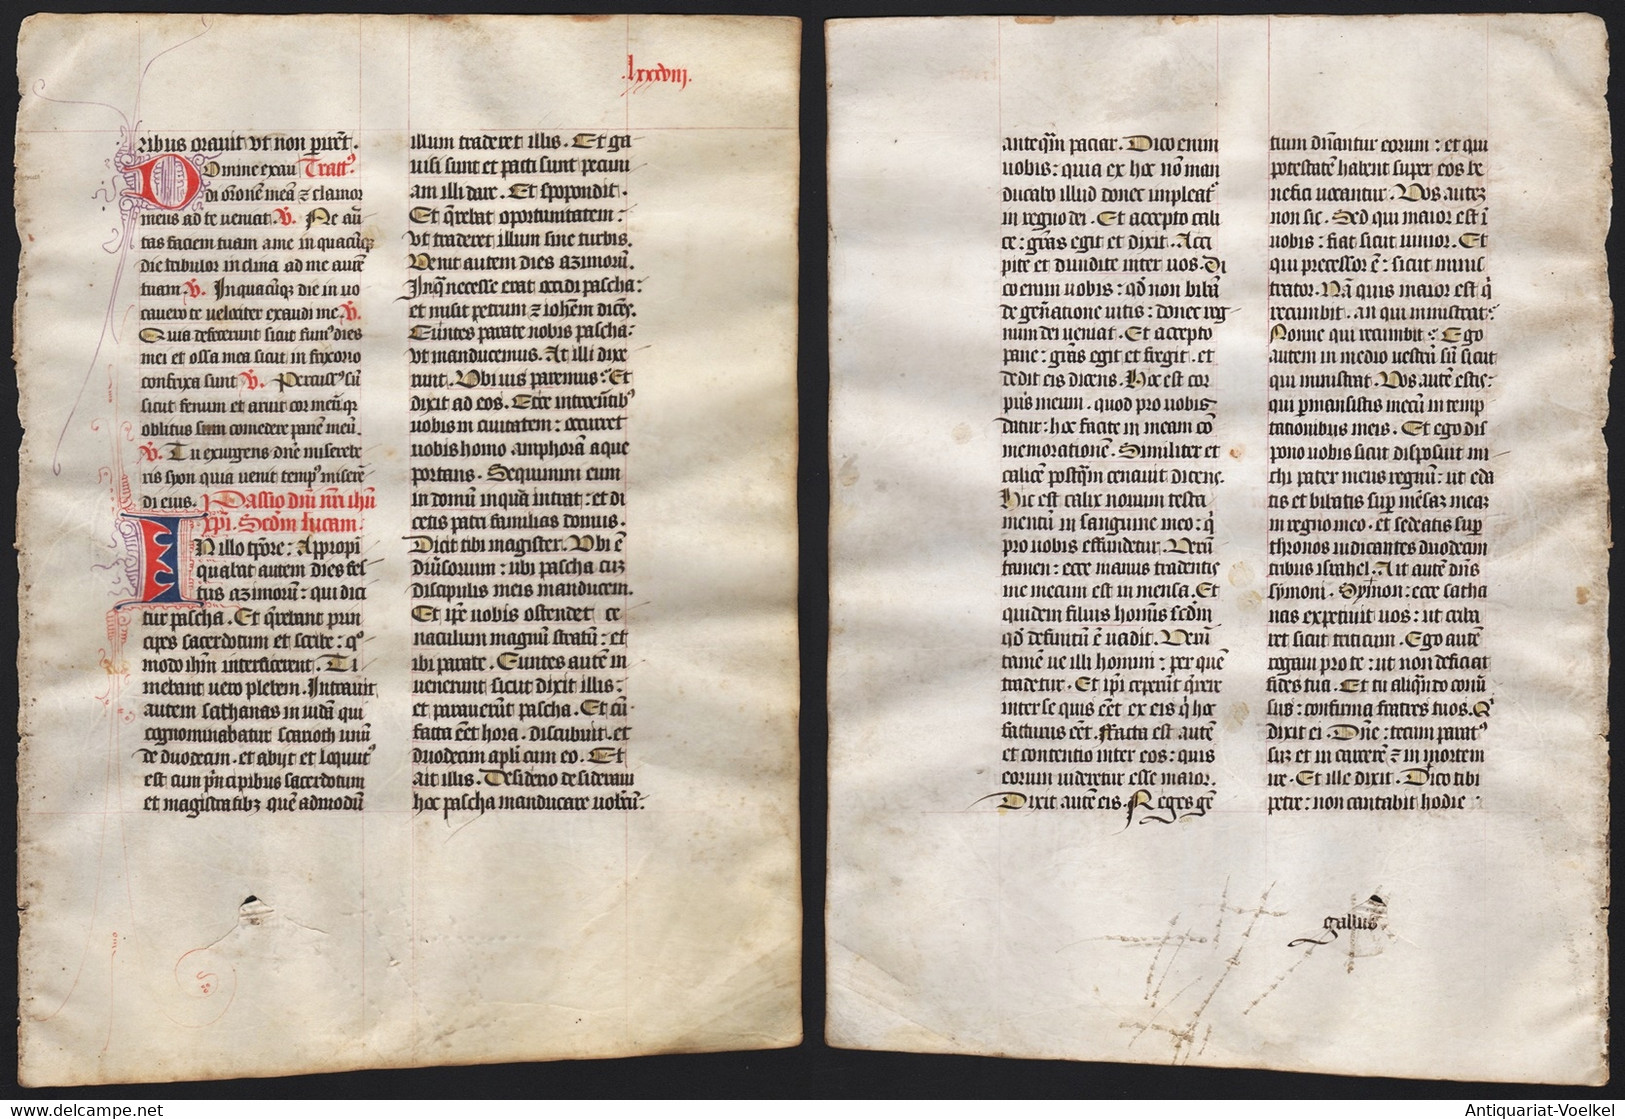 .lxxxviij.
ribus orauit vt non pirēt.
Domine exau Tractꝰ
di or̄onē meā ⁊ clamor
meus ad te ueniat. V̄. Ne au̅
tas faciem tuam a me in quacūqꝫ
die tribulor inclina ad me aurē
tuam. V̄. In quacūqꝫ die in uo
cauero te uelociter exaudi me. V̄.
Quia defecerunt sicut fumꝰ dies
mei et ossa mea sicut in frixorio
confrixa sunt V̄. Percussꝰ sū
sicut fenum et aruit cor meū qꝛ
oblitus sum comedere panē meū.
V̄. Tu exurgens dn̄e miserebe
ris syon quia uenit tempꝰ miserē
di eius. Passio dn̄i nr̄i ihū
xp̄i. Scd̄m lucam.
In illo tp̄ore: Appropi
quabat autem dies fes
tus azimorū: qui dici
tur pascha. Et q̄rebant prin
cipes sacerdotum et scribe: qꝰ
modo ih̄m interficerent. Ti
mebant uero plebem. Intrauit
autem sathanas in iudā qui
cognominabatur scarioth unū
de duodecim. et abijt et locutꝰ
est cum p̄ncipibus sacerdotum
et magistratibꝫ quē admodū
illum traderet illis. Et ga
uisi sunt et pacti sunt pecuni
am illi dare. Et spopondit.
Et q̄rebat oportunitatem:
vt traderet illum sine turbis.
Venit autem dies azimorū.
In q̄ necesse erat occidi pascha:
et misit petrum ⁊ ioh̄em dicēs.
Euntes parate nobis pascha:
vt manducemus. At illi dixe
runt. Vbi uis paremus: Et
dixit ad eos. Ecce introeūtibꝰ
uobis in ciuitatem: occurret
uobis homo amphorā aque
portans. Sequimini eum
in domū in quā intrat: et di
cetis patri familias domus.
Dicit tibi magister. Vbi ē
diu̅sorium: ubi pascha cuꝫ
discipulis meis manducem.
Et ip̄e uobis ostendet ce
naculum magnū stratū: et
ibi parate. Euntes autē in
uenerunt sicut dixit illis:
et parauerūt pascha. Et cū
facta eēt hora. discubuit. et
duodecim apl̄i cum eo. Et
ait illis. Desiderio desideraui
hoc pascha manducare uobcū.
anteq̄m paciar. Dico enim
uobis: quia ex hoc nō man
ducabo illud donec impleatꝰ
in regno dei. Et accepto cali
ce: gr̄as egit et dixit. Acci
pite et diuidite inter uos. Di
co enim uobis: qd̄ non bibā
de gēnatione uitis: donec reg
num dei ueniat. Et accepto
pane: gr̄as egit et fregit. et
dedit eis dicens. Hoc est cor
pus meum. quod pro uobis
datur: hoc facite in meam cō
memorationē. Similiter et
calicē postq̄m cenauit dicens.
Hic est calix nouum testa
mentū in sanguine meo: q̄
pro uobis effundetur. Verū
tamen: ecce manus tradentis
me mecum est in mensa. Et
quidem filius homīs scd̄m
qd̄ definitū ē uadit. Verū
tamē ue illi homini: per quē
tradetur. Et ip̄i ceperūt q̄rere
inter se quis eēt ex eis q̄ hoc
facturus eēt. Facta est autē
et contentio inter eos: quis
eorum uideretur esse maior.
Dixit autē eis. Reges gē
tium dn̄antur eorum: et qui
potestatē habent super eos be
nefici uocantur. Vos auteꝫ
non sic. Sed qui maior est ī
uobis: fiat sicut iunior. Et
qui precessor ē: sicut minis
trator. Nā quis maior est q̄
recumbit. an qui ministrat:
Nonne qui recumbit: Ego
autem in medio vestrū sū sicut
qui ministrat. Vos autē estis:
qui p̄mansistis mecū in temp
tationibus meis. Et ego dis
pono uobis sicut disposuit mi
chi pater meus regnū: ut eda
tis et bibatis sup̄ mēsaꝫ meaꝫ
in regno meo. et sedeatis sup̄
thronos iudicantes duodecim
tribus israhel. Ait autē dn̄s
symoni. Symon: ecce satha
nas expetiuit uos: ut criba
ret sicut triticum. Ego autē
rogaui pro te: ut non deficiat
fides tua. Et tu aliq̄ndo conū
sus: confirma fratres tuos. Qꝰ
dixit ei. Dn̄e: tecum paratꝰ
suꝫ et in carcerē ⁊ in mortem
ire. Et ille dixit. Dico tibi
petre: non cantabit hodie
gallus
Antiquariat-Voelkel
www.delcampe.net